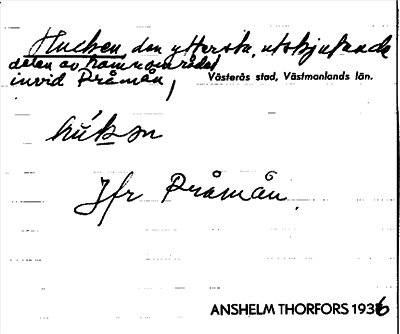 Hucken, den yttersta, utskjutande
delen av hamnområdet
invid Pråmån,
Västerås stad, Västmanlands län.
hu̍kən
Jfr Pråmån.
ANSHELM THORFORS 1936